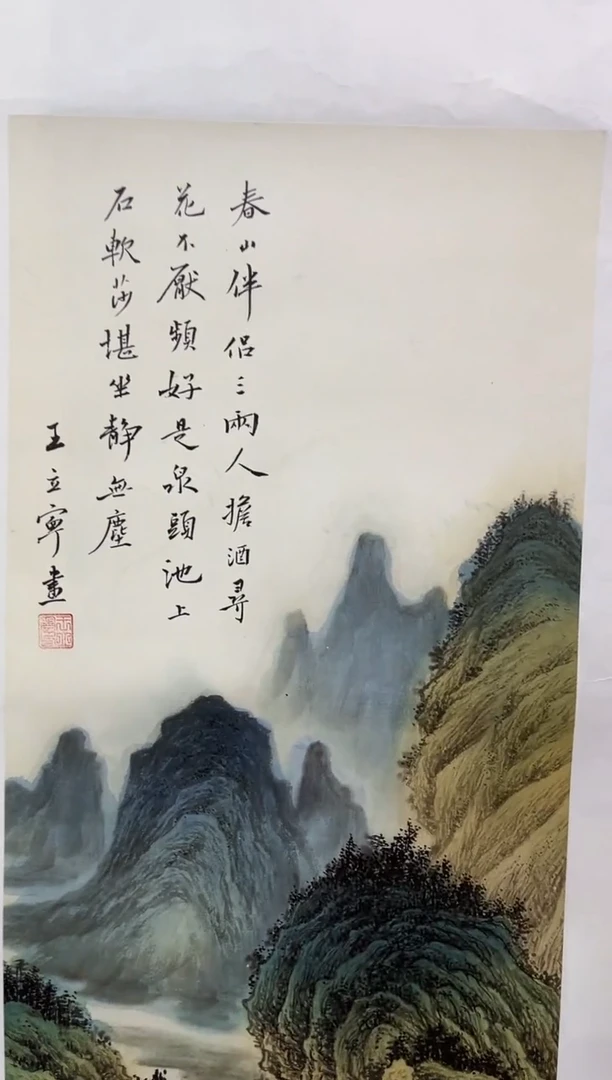 春山伴侣三兩人擔酒尋
花不厭頻好是泉頭池上
石軟莎堪坐静無塵
王立寧畫